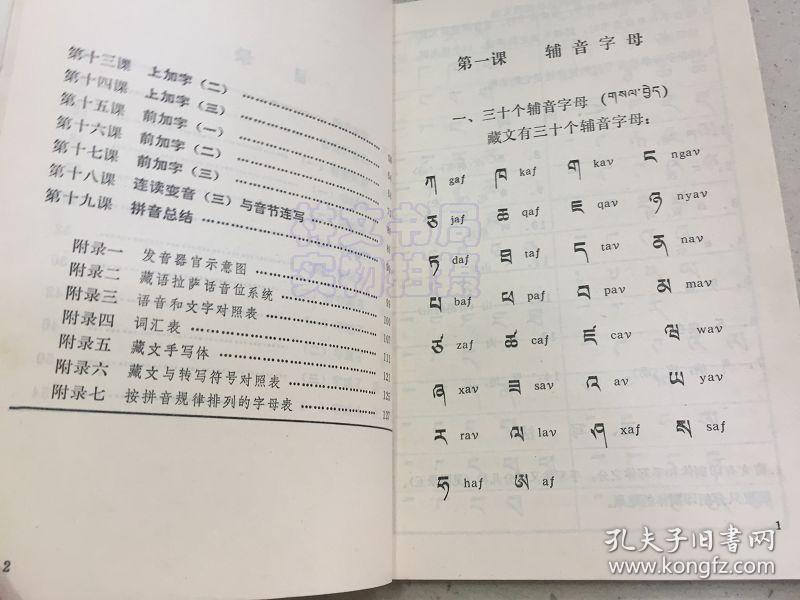 第十三课 上加字（二）
第十四课 上加字（三）
第十五课 前加字（一）
第十六课 前加字（二）
第十七课 前加字（三）
第十八课 连读变音（三）与音节连写
第十九课 拼音总结
附录一 发音器官示意图
附录二 藏语拉萨话音位系统 99
附录三 语音和文字对照表 100
附录四 词汇表 107
附录五 藏文手写体 111
附录六 藏文与转写符号对照表 125
附录七 按拼音规律排列的字母表 127
2
第一课 辅音字母
一、三十个辅音字母（གསལ་བྱེད）
藏文有三十个辅音字母：
ཀ gaf ཁ kaf ག kav ང ngav
ཅ jaf ཆ qaf ཇ qav ཉ nyav
ཏ daf ཐ taf ད tav ན nav
པ baf ཕ paf བ pav མ mav
ཙ zaf ཚ caf ཛ cav ཝ wav
ཞ xav ཟ sav འ av ཡ yav
ར rav ལ lav ཤ xaf ས saf
ཧ haf ཨ af
1
孔夫子旧书网
kongfz.com